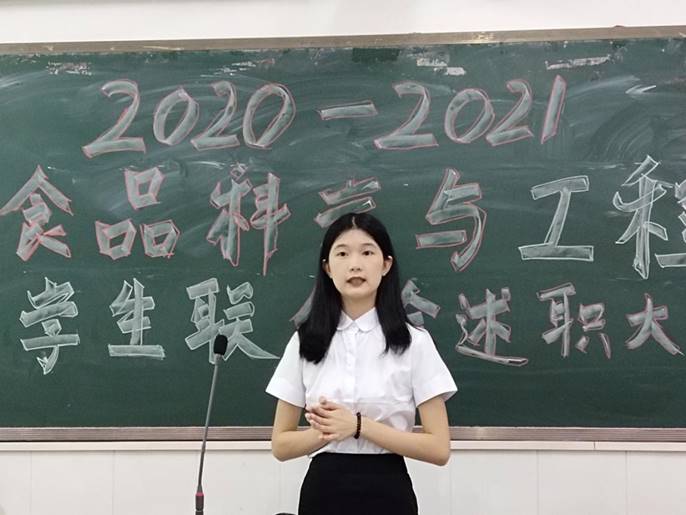 2020-2021
食品科学与工程
学生联合会述职大